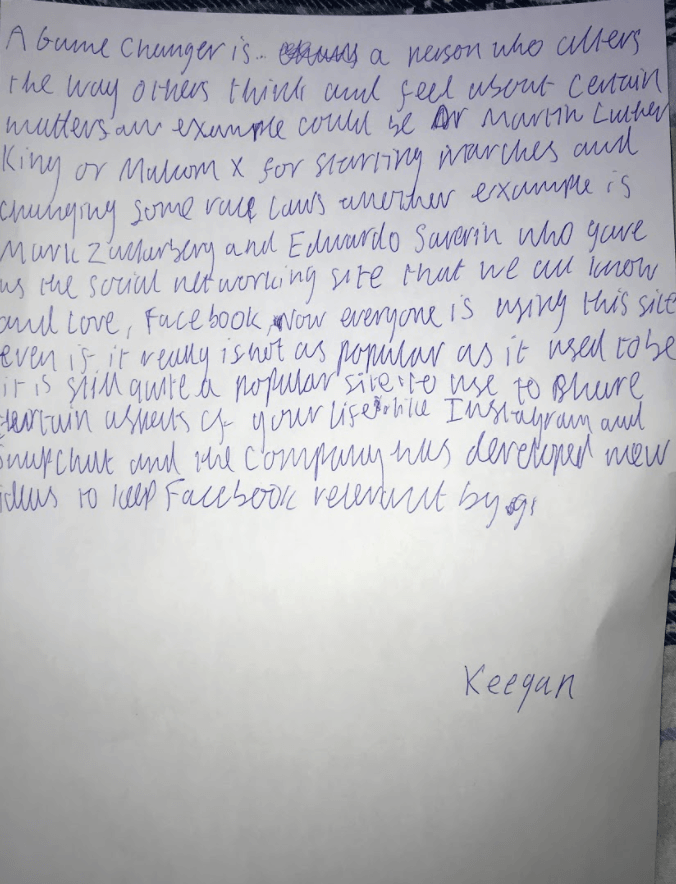 A Game Changer is a person who alters
the way others think and feel about certain
matters an example could be Dr Martin Luther
King or Malcom X for starting marches and
changing some race laws another example is
Mark Zuckerberg and Edwardo Saverin who gave
us the social networking site that we all know
and love, Facebook, Now everyone is using this site
even if it really is not as popular as it used to be
it is still quite a popular site to use to share
certain aspects of your life like Instagram and
Snapchat and the company has developed new
ideas to keep Facebook relevant by gi
Keegan